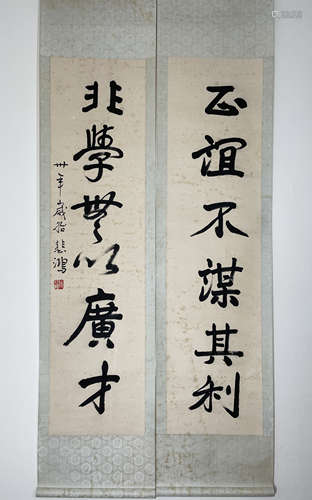 正誼不謀其利
非學無以廣才
卅年歲始 悲鴻